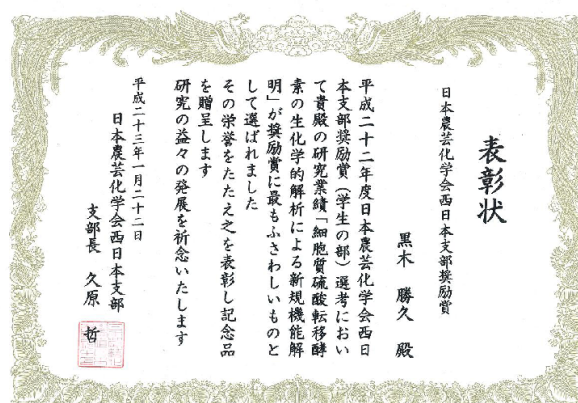 表彰状
日本農芸化学会西日本支部奨励賞
黒木　勝久　殿
平成二十二年度日本農芸化学会西日
本支部奨励賞（学生の部）選考におい
て貴殿の研究業績「細胞質硫酸転移酵
素の生化学的解析による新規機能解
明」が奨励賞に最もふさわしいものと
して選ばれました
その栄誉をたたえ之を表彰し記念品
を贈呈します
研究の益々の発展を祈念いたします
平成二十三年一月二十二日
日本農芸化学会西日本支部
支部長　久原　哲